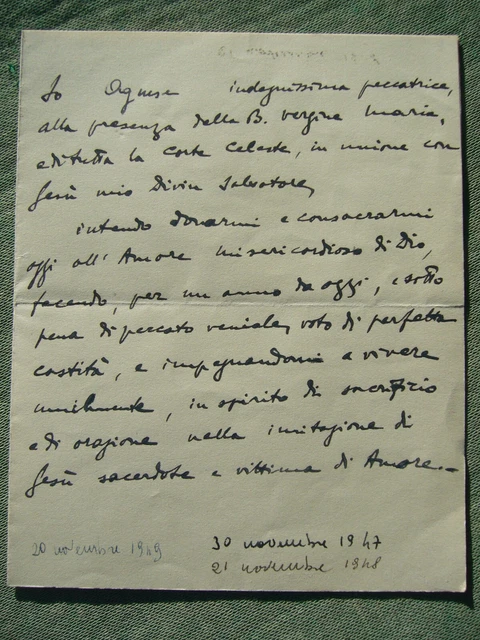 Io Agnese indegnissima peccatrice,
alla presenza della B. Vergine Maria,
e di tutta la Corte Celeste, in unione con
Gesù mio Divin Salvatore,
intendo donarmi e consacrarmi
oggi all'Amore misericordioso di Dio,
facendo, per un anno da oggi, e sotto
pena di peccato veniale, voto di perfetta
castità, e impegnandomi a vivere
umilmente, in spirito di sacrificio
e di orazione nella imitazione di
Gesù sacerdote e vittima di Amore.-
30 novembre 1947
20 novembre 1949
21 novembre 1948